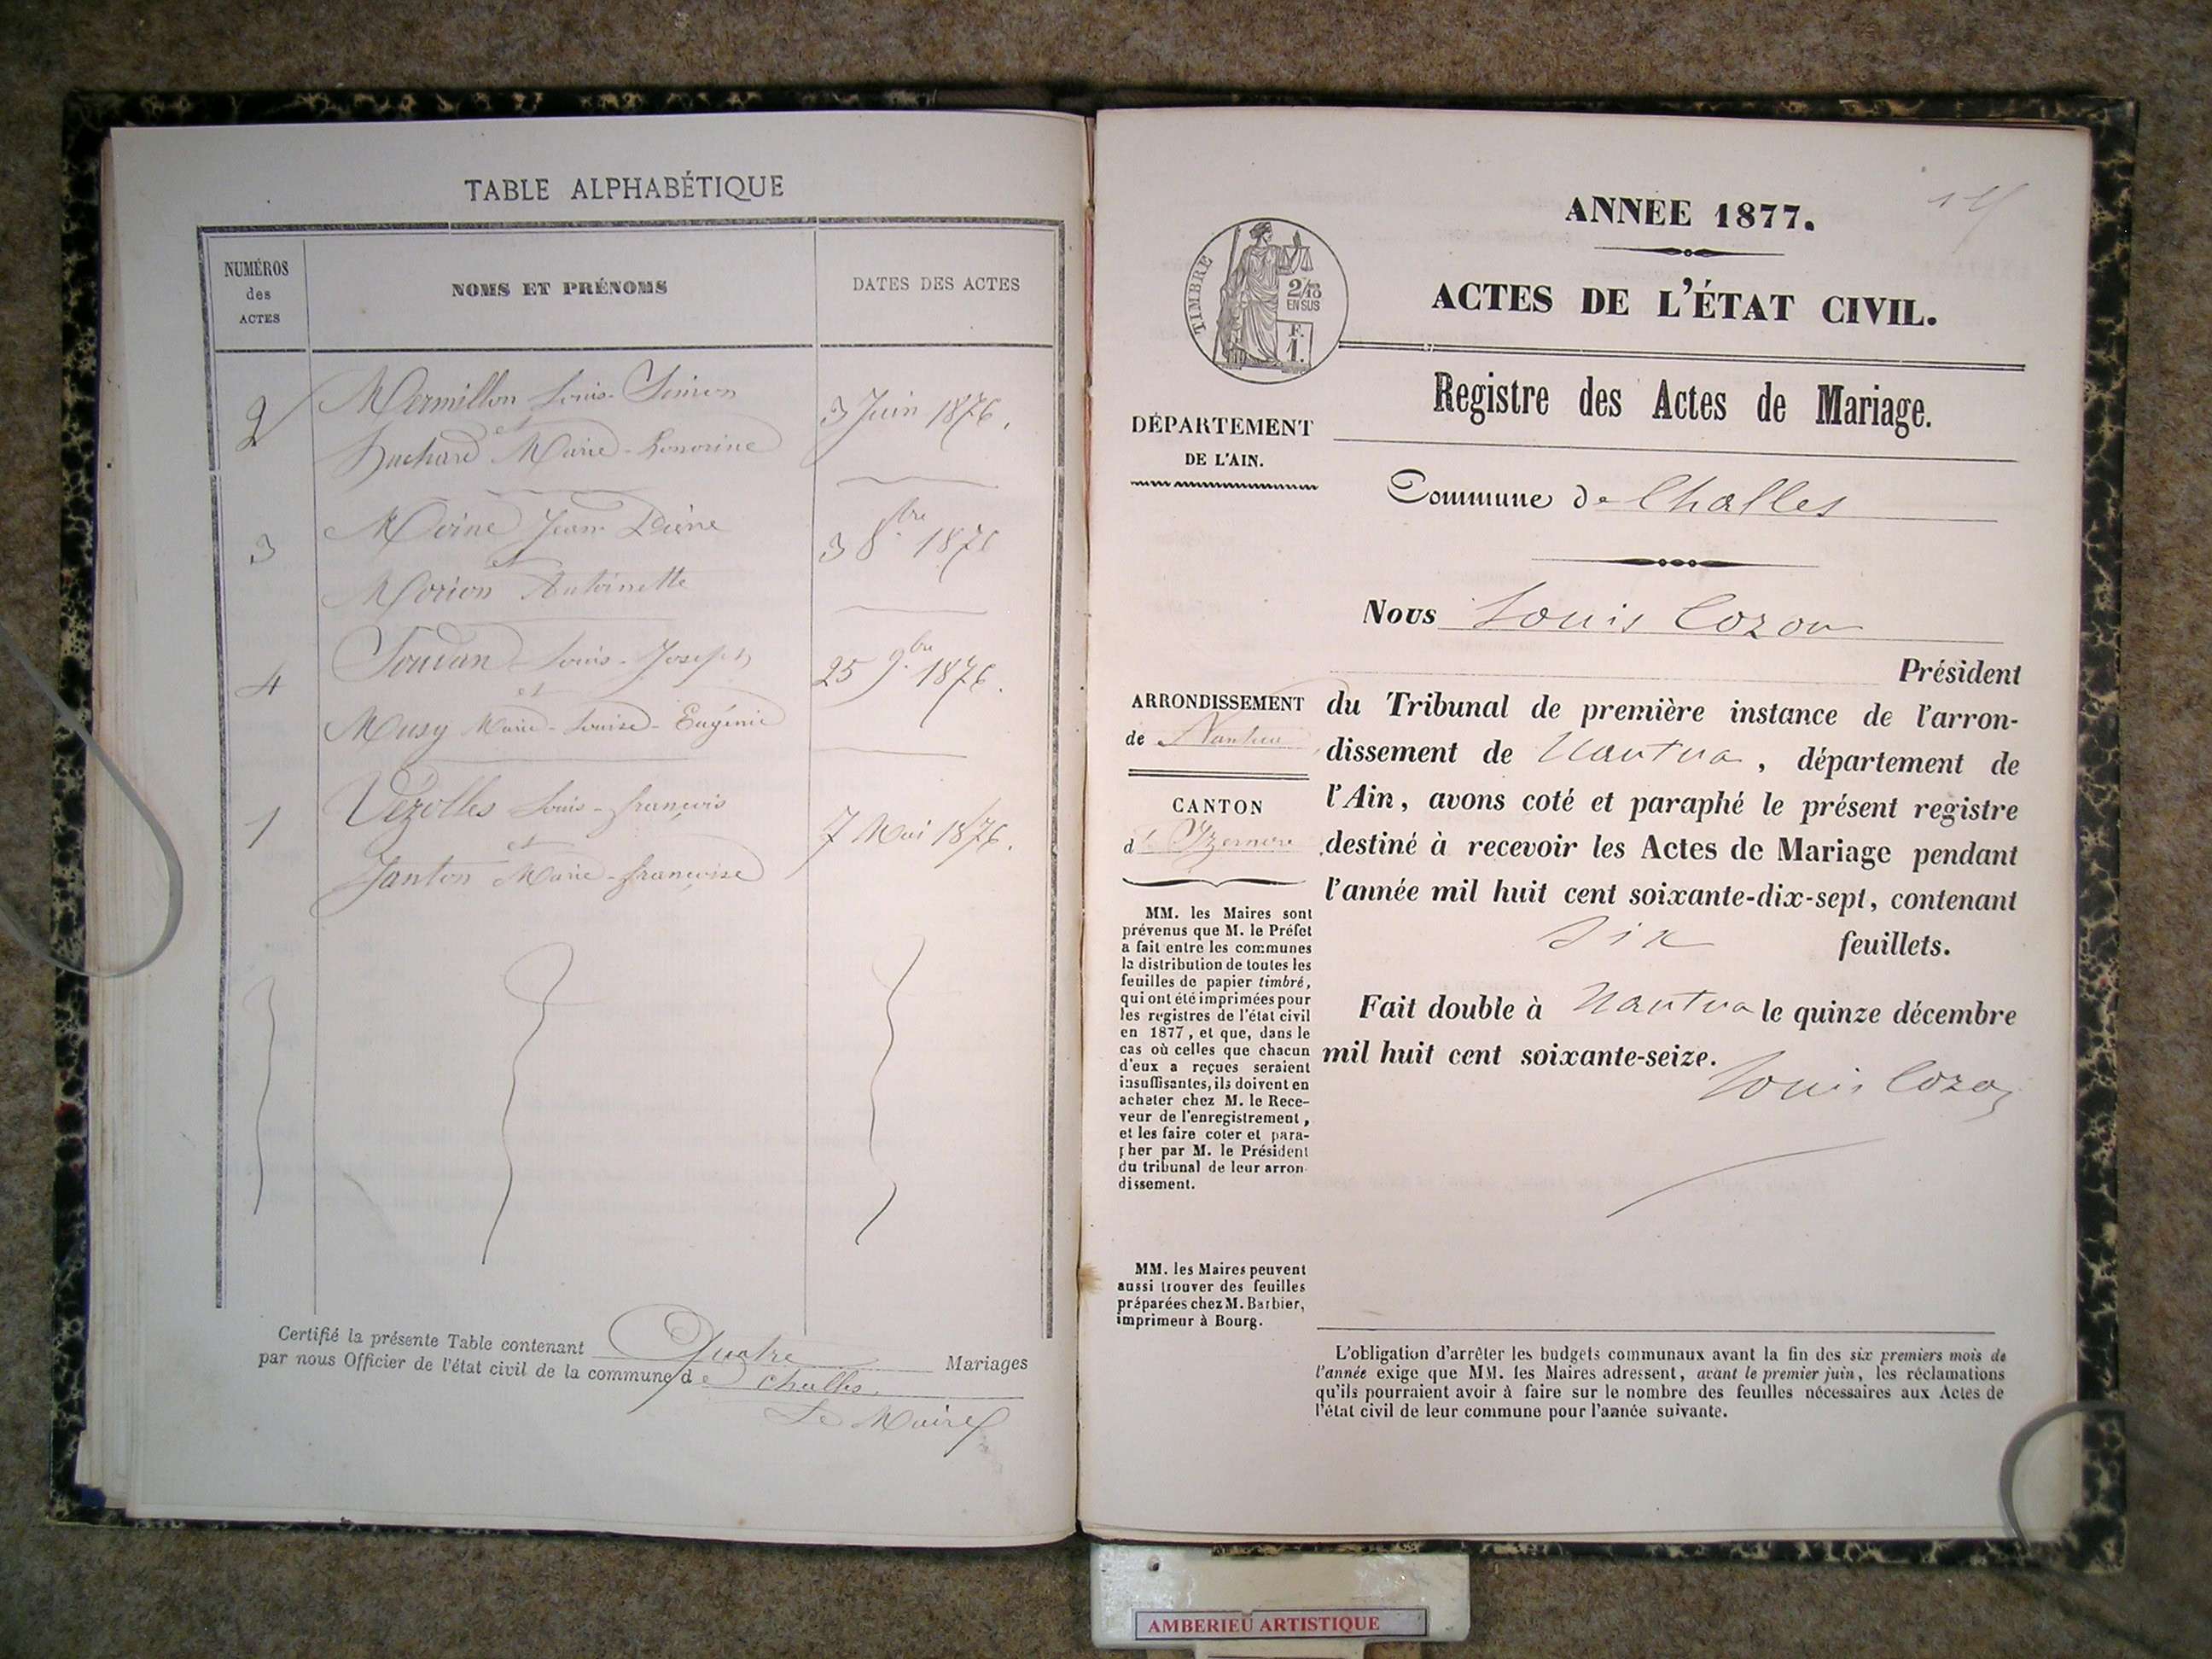 TABLE ALPHABÉTIQUE
NUMÉROS
des
ACTES
NOMS ET PRÉNOMS
DATES DES ACTES
2 Mermillon Louis-Simon 3 Juin 1876.
et
Huchard Marie-honorine
3 Morine Jean 3 8bre 1876
et
Morion Antoinette
4 Soudan Louis-Joseph 25 9bre 1876.
et
Musy Marie-Louise-Eugénie
1 Vézolles Louis-françois 7 Mai 1876.
et
Janton Marie-françoise
Certifié la présente Table contenant Quatre Mariages
par nous Officier de l'état civil de la commune de Challes
Le Maire
ANNÉE 1877.
TIMBRE
2/10
EN SUS
F.
1.
ACTES DE L'ÉTAT CIVIL.
Registre des Actes de Mariage.
DÉPARTEMENT
DE L'AIN.
Commune de Challes
Nous Louis Cozon
Président
ARRONDISSEMENT
de Nantua
CANTON
d'Izernore
du Tribunal de première instance de l'arron-
dissement de Nantua, département de
l'Ain, avons coté et paraphé le présent registre
destiné à recevoir les Actes de Mariage pendant
l'année mil huit cent soixante-dix-sept, contenant
six feuillets.
Fait double à Nantua le quinze décembre
mil huit cent soixante-seize.
Louis Cozon
MM. les Maires sont
prévenus que M. le Préfet
a fait entre les communes
la distribution de toutes les
feuilles de papier timbré,
qui ont été imprimées pour
les registres de l'état civil
en 1877, et que, dans le
cas où celles que chacun
d'eux a reçues seraient
insuffisantes, ils doivent en
acheter chez M. le Rece-
veur de l'enregistrement,
et les faire coter et para-
pher par M. le Président
du tribunal de leur arron-
dissement.
MM. les Maires peuvent
aussi trouver des feuilles
préparées chez M. Barbier,
imprimeur à Bourg.
L'obligation d'arrêter les budgets communaux avant la fin des six premiers mois de
l'année exige que MM. les Maires adressent, avant le premier juin, les réclamations
qu'ils pourraient avoir à faire sur le nombre des feuilles nécessaires aux Actes de
l'état civil de leur commune pour l'année suivante.
AMBERIEU ARTISTIQUE